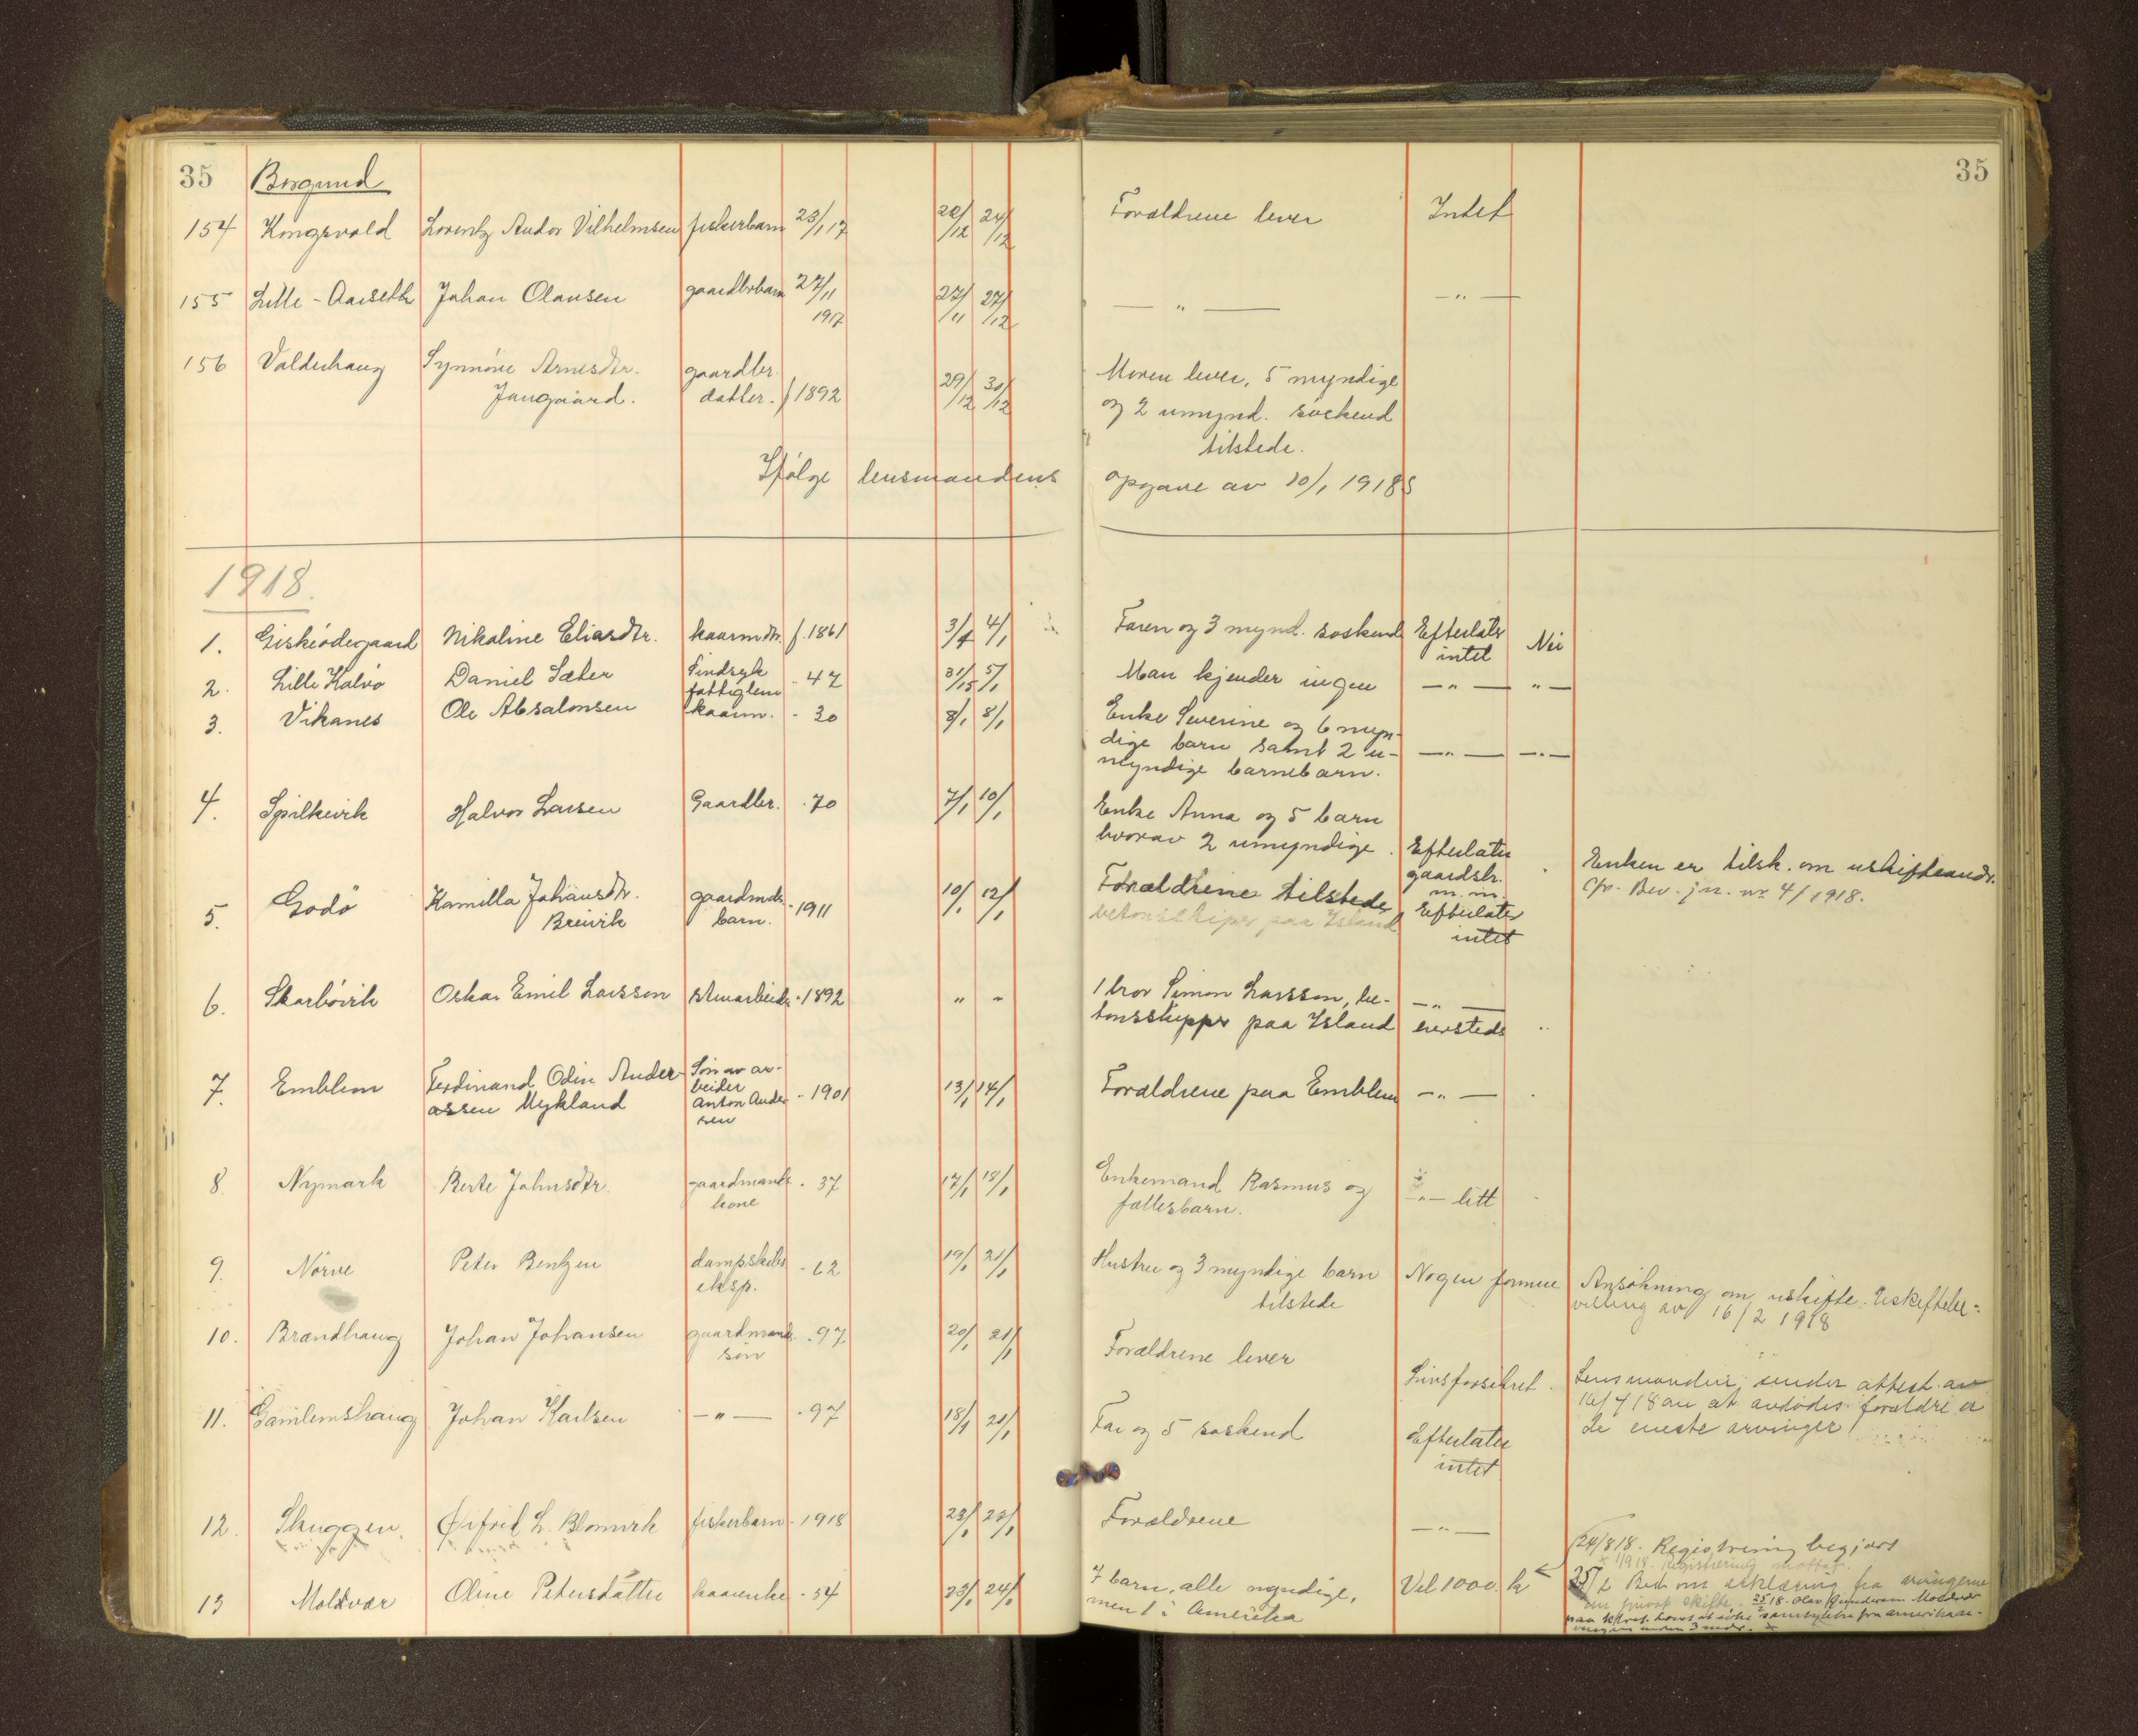 35 Borgund 35
154 Kongsvold Lorentz Andor Vilhelmsen fiskerbarn 23/1 17 22/12 24/12 Forældrene lever Intet
155 Lille-Aarseth Johan Olausen gaardbrbarn 27/11 1917 27/11 27/12 — " — — " —
156 Valderhaug Synnöve Arnesdtr. gaardbr. Moren lever, 5 myndige
Jangaard. datter. f 1892 29/12 30/12 og 2 umynd. söskend
tilstede.
Ifölge lensmandens opgave av 10/1 1918
1918.
1. Giskeödegaard Nikoline Eliasdtr. kaarmdtr. f. 1861 3/1 4/1 Faren og 3 mynd. söskend Efterlater intet Nei
2. Lille Kalvö Daniel Sæter Sindssyk fattiglem - 47 31/12 5/1 Man kjender ingen — " — " —
3. Vikanes Ole Absalonsen kaarm. - 30 8/1 8/1 Enke Severine og 6 myn-
dige barn samt 2 u- — " — — " —
myndige barnebarn.
4. Spilkevik Halvor Larsen Gaardbr. - 70 7/1 10/1 Enke Anna og 5 barn
hvorav 2 umyndige. Efterlater gaardsbr. m.m. Enken er tilsk. om uskifteandr.
cfr. Bev. jn. nr 4/1918.
5. Godö Kamilla Johansdtr. Breivik gaardmds barn. - 1911 10/1 12/1 Forældrene tilstede Efterlater intet
betonsskiper paa Island
6. Skarbövik Oskar Emil Larsson stuarbeider - 1892 " " 1 bror Simon Larsson, be- — " —
tonsskipper paa Island
7. Emblem Ferdinand Odin Ander- Sön av ar- beider - 1901 13/1 14/1 Forældrene paa Emblem — " —
assen Mykland Anton Ander sen
8. Nymark Berte Johnsdtr. gaardmands kone - 37 17/1 18/1 Enkemand Rasmus og — " — litt
fællesbarn.
9. Nörve Peter Bentzen dampskibs eksp. - 62 19/1 21/1 Hustru og 3 myndige barn Nogen formue Ansökning om uskifte. Uskiftebe-
tilstede villing av 16/2 1918
10. Brandhaug Johan Johansen gaardmands sön - 97 20/1 21/1 Forældrene lever Livsforsikret. Lensmanden sender attest av
16/4 18 om at avdödes forældre er
11. Gamlemshaug Johan Karlsen — " — - 97 18/1 21/1 Far og 5 söskend Efterlater intet de eneste arvinger
12. Skuggen L. Blomvik fiskerbarn - 1918 23/1 23/1 Forældrene — " —
24/8 18. Registrering begjært
1/9 18. Registrering mottat.
13 Moldvær Oline Petersdatter kaarenke - 34 23/1 24/1 7 barn, alle myndige, Vel 1000. kr 25/2 Bedt om erklæring fra arvingerne
men 1 i Amerika om privat skifte. Olav Gunderson Moldvær